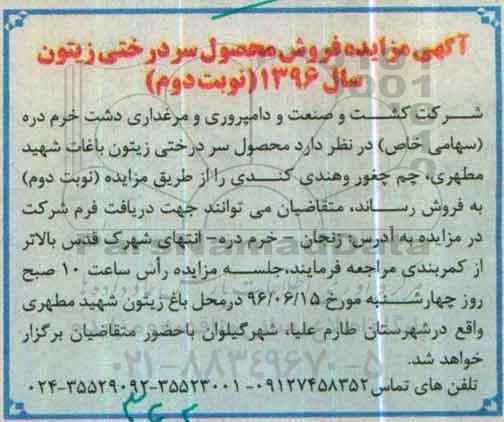 آگهی مزایده فروش محصول سردرختی زیتون
سال ۱۳۹۶ (نوبت دوم)
شرکت کشت و صنعت و دامپروری و مرغداری دشت خرم دره
(سهامی خاص) در نظر دارد محصول سر درختی زیتون باغات شهید
مطهری، چم چغور وهندی کندی را از طریق مزایده (نوبت دوم)
به فروش رساند، متقاضیان می توانند جهت دریافت فرم شرکت
در مزایده به آدرس: زنجان - خرم دره- انتهای شهرک قدس بالاتر
از کمربندی مراجعه فرمایند،جلسه مزایده رأس ساعت ۱۰ صبح
روز چهارشنبه مورخ ۹۶/۰۶/۱۵ درمحل باغ زیتون شهید مطهری
واقع درشهرستان طارم علیا، شهرگیلوان باحضور متقاضیان برگزار
خواهد شد.
۰۲۱-۸۸۳۴۹۶۷۰-۵
تلفن های تماس ۰۹۱۲۷۴۵۸۳۵۲- ۳۵۵۲۳۰۰۱-۰۲۴-۳۵۵۲۹۰۹۲